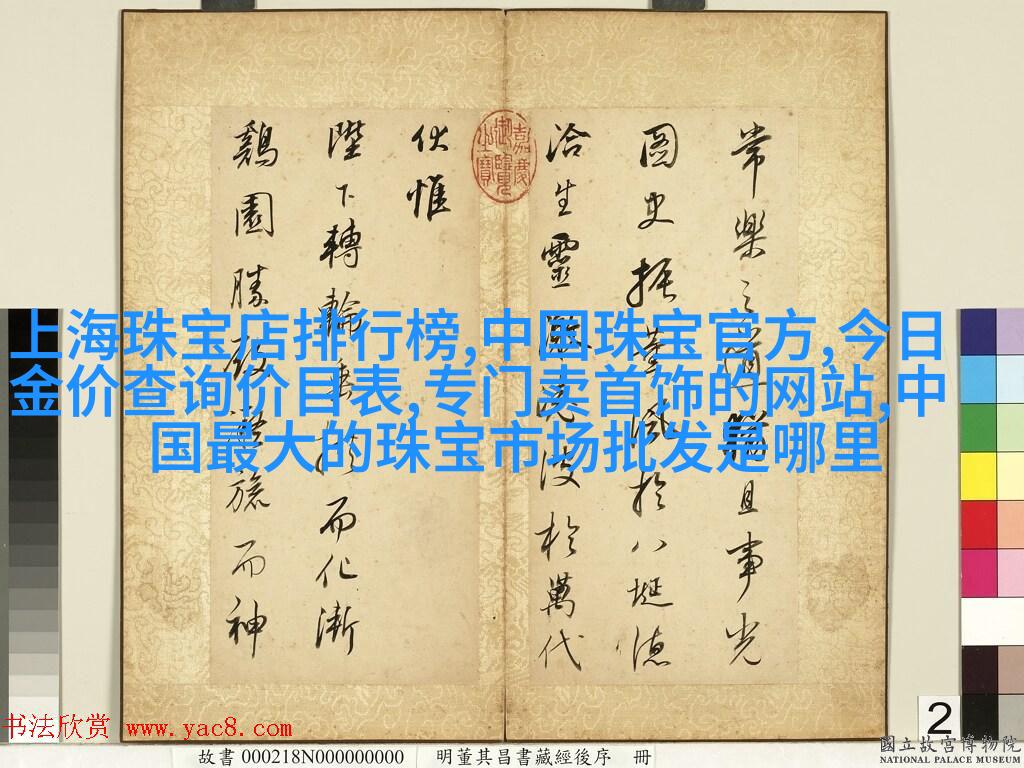 常樂之且事光
圖史振於八埏德
洽生靈波於萬代
伏惟
陛下轉輪垂拱而化漸
鷄園勝殿凝旒而神
嘉慶御覽之寶
上海珠宝店排行榜,中国珠宝官方,今日
金价查询价目表,专门卖首饰的网站,中
国最大的珠宝市场批发是哪里
书法欣赏 www.yac8.com
故書 000218N000000000 明董其昌書藏經後序 冊
2
國立故宮博物院
NATIONAL PALACE MUSEUM